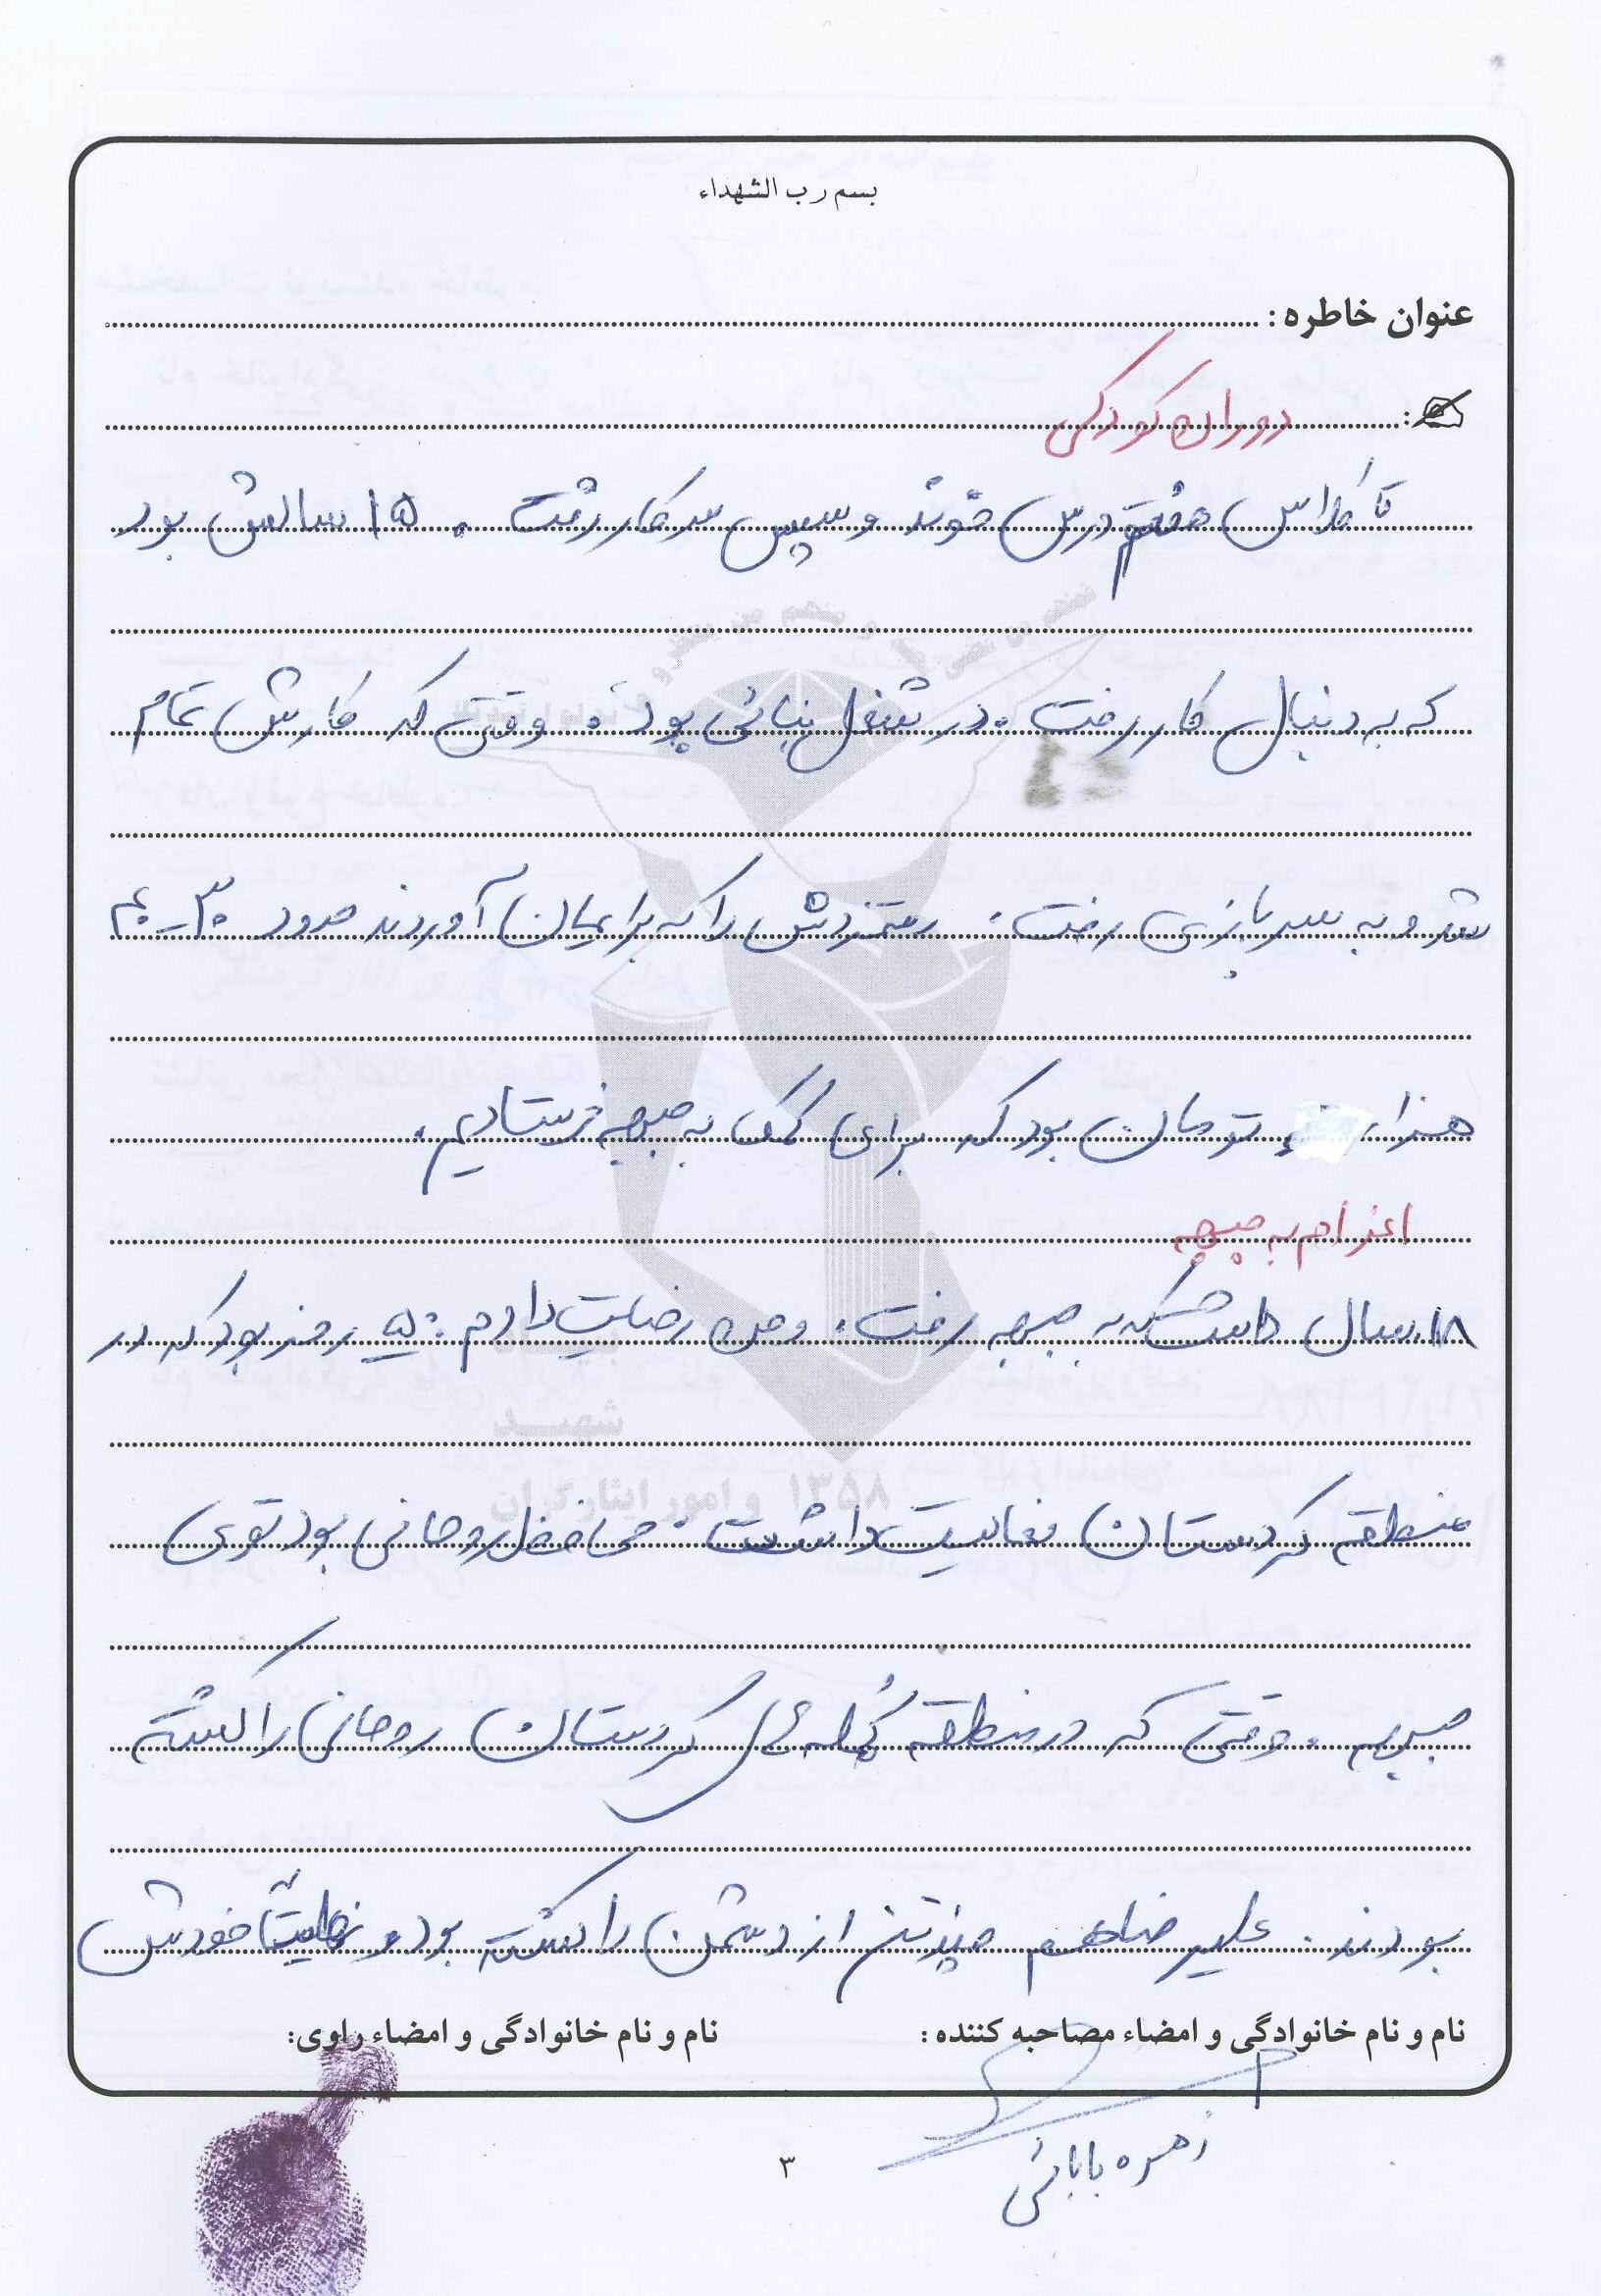 بسم رب الشهداء
عنوان خاطره :
دوران کودکی
تا کلاس هفتم درس خوند و سپس سر کار رفت . ۱۵ سالش بود
که به دنبال کار رفت . در شغل بنائی بود . وقتی که کارش تمام
شد و به سربازی رفت . دستمزدش را که برایمان آوردند حدود ۳۰-۴۰
هزار تومان بود که برای کمک به جبهه فرستادیم .
اعزام به جبهه
۱۸ سال داشت که به جبهه رفت . و من رضایت دارم . ۵۰ روز بود که در
منطقه کردستان فعالیت داشت . محافظ روحانی بود توی
جبهه . وقتی که در منطقه کردستان روحانی را کشته
بودند . علیرضا هم چند تن از دشمن را کشته بود و نهایتاً خودش
نام و نام خانوادگی و امضاء مصاحبه کننده :
نام و نام خانوادگی و امضاء راوی:
زهره بابائی
۳
شهید
۱۳۵۸ و امور ایثارگران